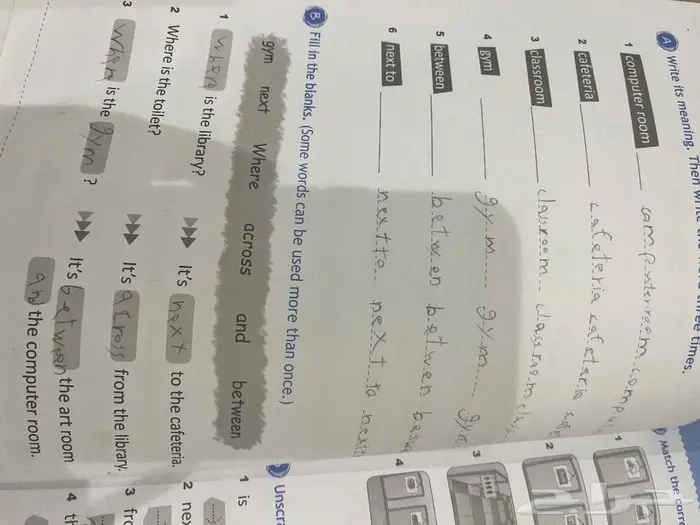 A Write its meaning. Then write three times.
1 computer room
2 cafeteria cafeteria cafeteria
3 classroom classroom classroom
4 gym gym gym gym
5 between betwen betwen
6 next to next to next to
B Fill in the blanks. (Some words can be used more than once.)
gym next Where across and between
1 when is the library? It's next to the cafeteria.
2 Where is the toilet? It's across from the library.
3 when is the gym ? It's betwen the art room
and the computer room.
Match the
1
2
3
4
1 is
2
3
4